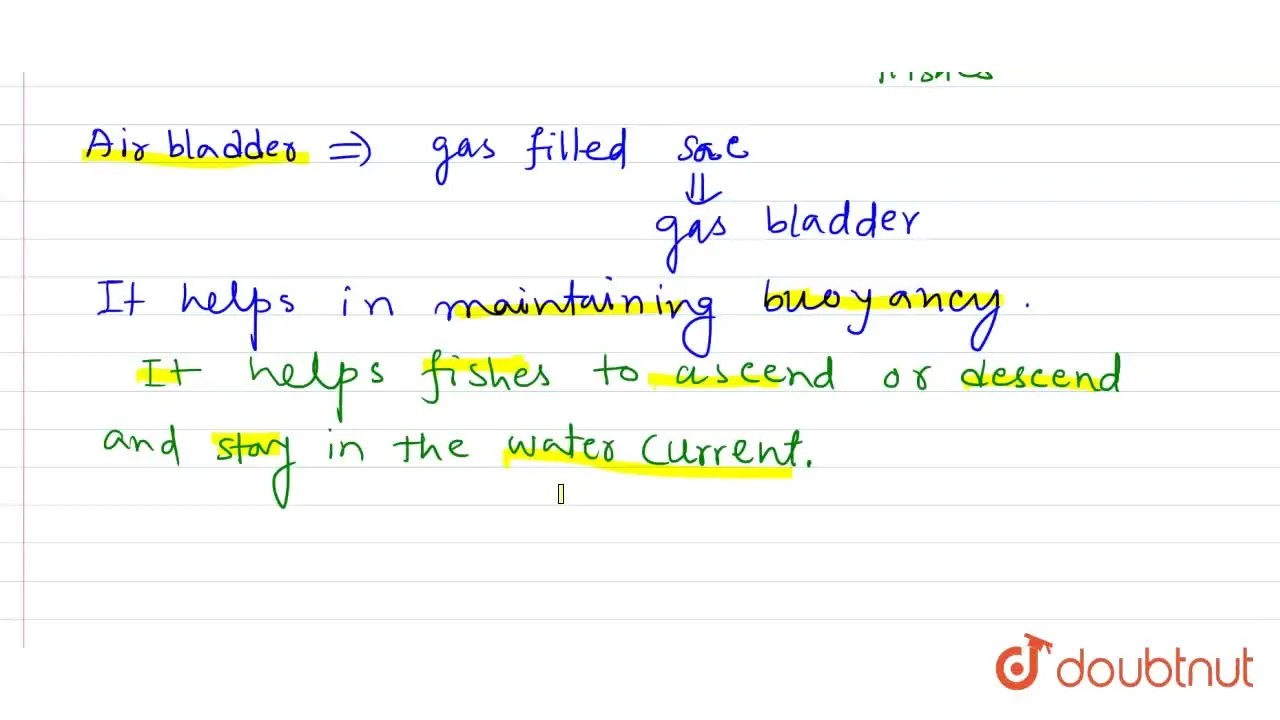 Air bladder ⇒ gas filled sac
⇓
gas bladder
It helps in maintaining buoyancy.
It helps fishes to ascend or descend
and stay in the water current.
doubtnut